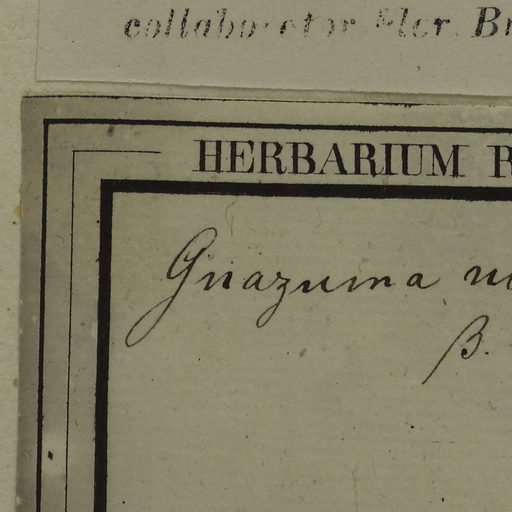 collaborator Flor. Br
HERBARIUM R
Guazuma
β.